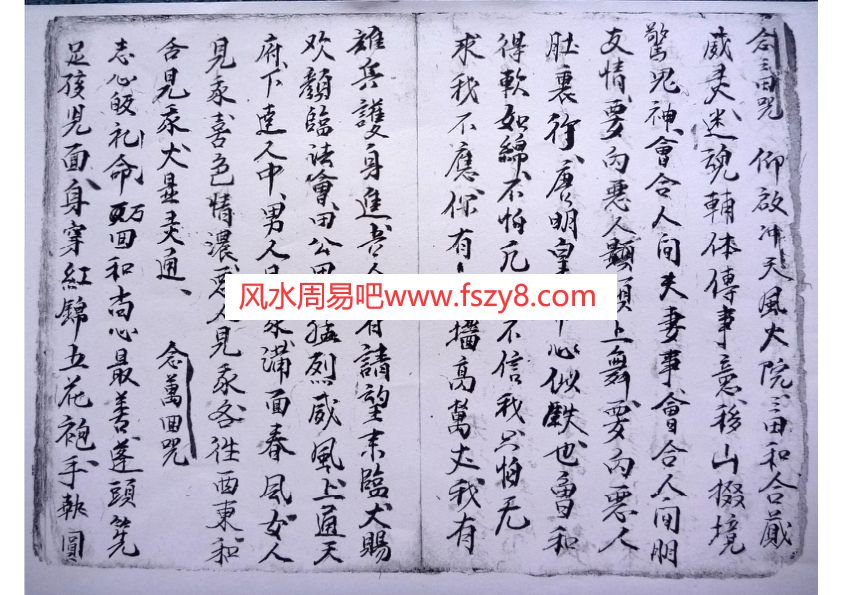 念三田咒 仰啟冲天風火院三田和合藏
威灵迷魂輔体傳事意移山撥境
驚鬼神會合人間夫妻事會合人间朋
友情要向惡人頭頂上舞要向惡人
肚裏行唐明皇心似鉄也會和
得軟如綿不怕不信我只怕无
求我不應你有擋高萬丈我有
雄兵護身進吾人有請望来臨大賜
欢顏臨法會田公烈威風上通天
府下達人中男人見我满面春風女人
見我喜色情濃惡人見我各徃西東和
合見我大显灵通 念萬回咒
志心皈礼命萬回和尚心最善蓬頭跣
足孩児面身穿紅錦五花袍手執圓
风水周易吧www.fszy8.com